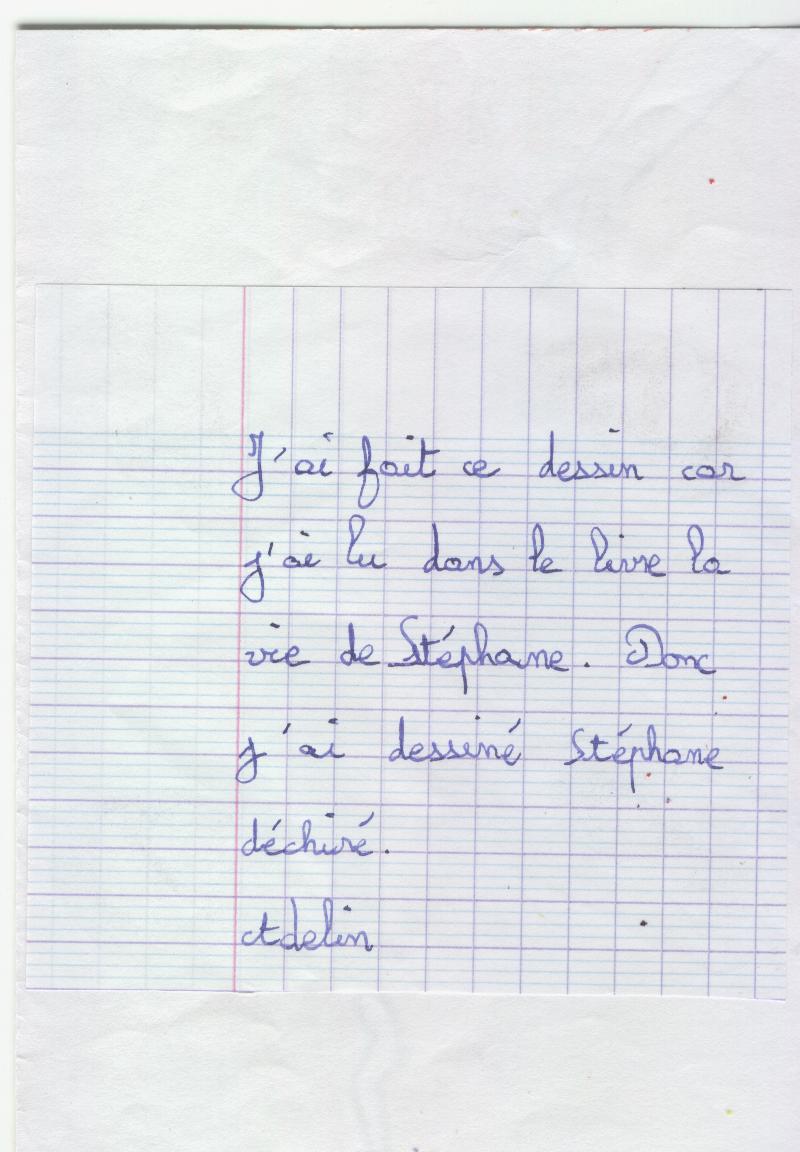 J'ai fait ce dessin car
j'ai lu dans le livre la
vie de Stéphane. Donc
j'ai dessiné Stéphane
déchiré.
Adelin